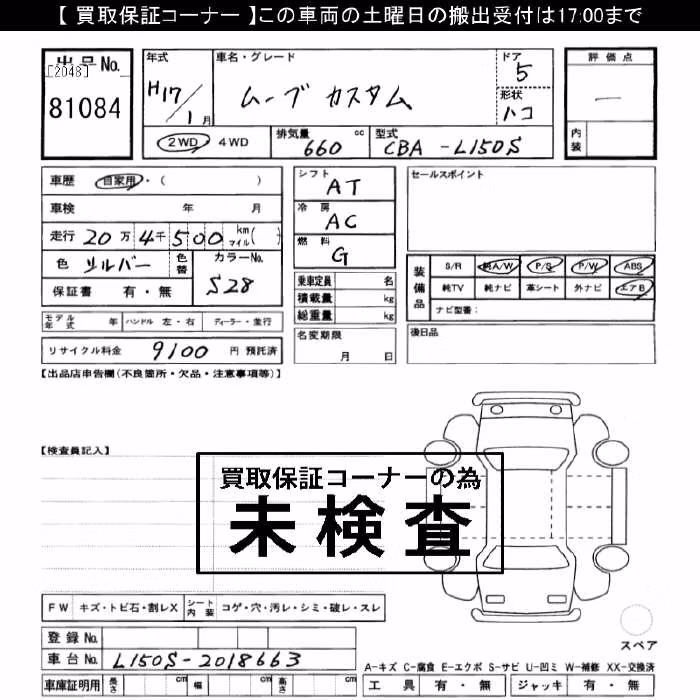 【 買取保証コーナー 】この車両の土曜日の搬出受付は17:00まで
出品No.
[2048]
81084
年式
H17/1月
車名・グレード
ムーブ カスタム
ドア
5
形状
ハコ
2WD・4WD
排気量 660 cc
型式 CBA-L150S
評価点
―
内装
車歴 自家用・( )
車検 年 月
走行 20万4千500 km マイル( )
色 シルバー 色替
カラーNo. S28
保証書 有・無
シフト AT
冷房 AC
燃料 G
乗車定員 名
積載量 kg
総重量 kg
セールスポイント
装備品
S/R 純A/W P/S P/W ABS
純TV 純ナビ 革シート 外ナビ エアB
ナビ型番:
モデル年式 年 ハンドル 左・右 ディーラー・並行
リサイクル料金 9100 円 預託済
名変期限 月 日
後日品
【出品店申告欄(不良箇所・欠品・注意事項等)】
【検査員記入】
買取保証コーナーの為
未検査
FW キズ・トビ石・割レX シート内装 コゲ・穴・汚レ・シミ・破レ・スレ
登録No.
車台No. L150S-2018663
車庫証明用 長さ cm 幅 cm 高さ cm
スペア
A-キズ C-腐食 E-エクボ S-サビ U-凹ミ W-補修 XX-交換済
工具 有・無 ジャッキ 有・無